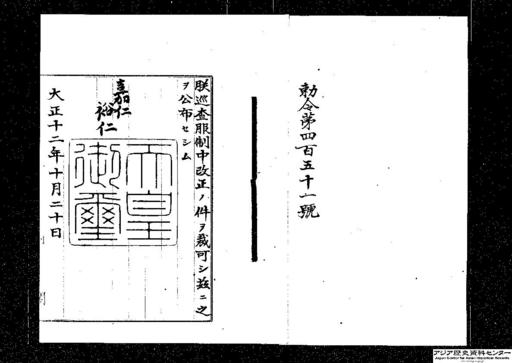 勅令第四百五十一號
朕巡査服制中改正ノ件ヲ裁可シ茲ニ之
ヲ公布セシム
嘉仁
裕仁
天皇
御璽
大正十二年十月二十日
アジア歴史資料センター
Japan Center for Asian Historical Records